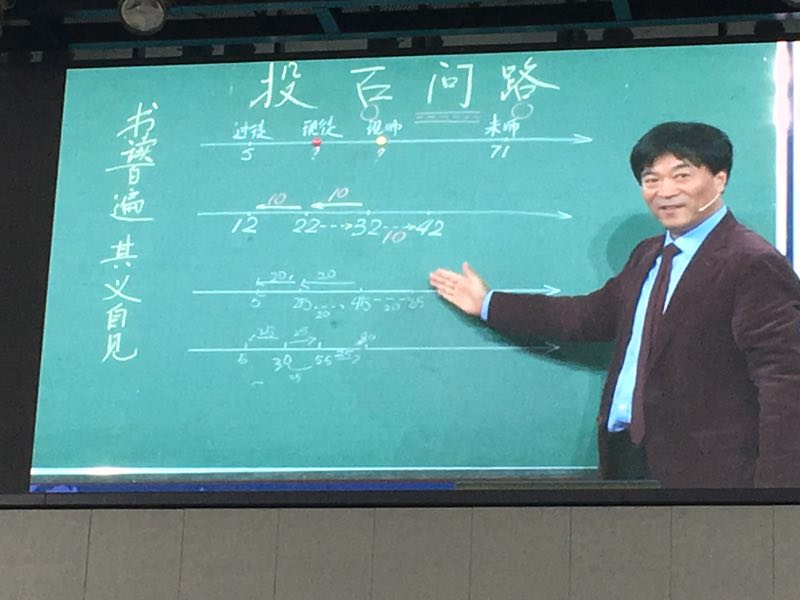 投石问路
书读百遍 其义自见
过徒 现徒 现师 未师
5 ? ? 71
10 10
12 22 32 42
10
20 20
5 25 45 65
20 20
25 25
5 30 55 80
25